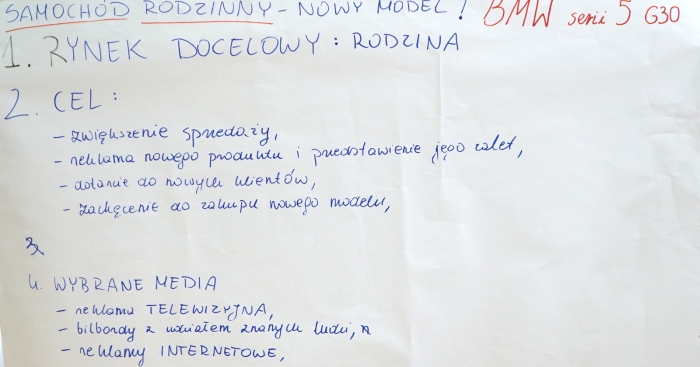 SAMOCHÓD RODZINNY - NOWY MODEL! BMW serii 5 G30
1. RYNEK DOCELOWY: RODZINA
2. CEL:
- zwiększenie sprzedaży,
- reklama nowego produktu i przedstawienie jego zalet,
- dotarcie do nowych klientów,
- zachęcenie do zakupu nowego modelu,
3.
4. WYBRANE MEDIA
- reklama TELEWIZYJNA,
- bilbordy z udziałem znanych ludzi,
- reklamy INTERNETOWE,